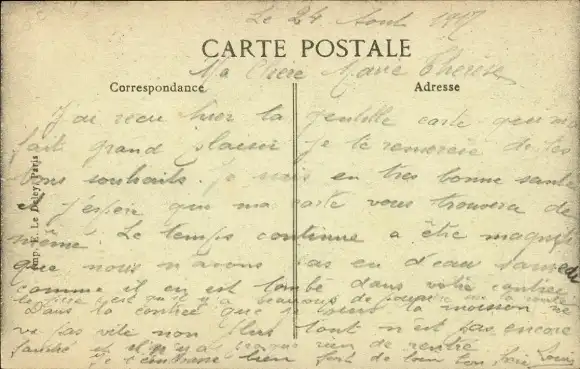 Le 24 Aout 1917
CARTE POSTALE
Ma Chère Marie Thérèse
Correspondance
Adresse
J'ai reçu hier ta gentille carte qui m'a
fait grand plaisir je te remercie de tes
bons souhaits. Je suis en très bonne santé
et j'espère que ma carte vous trouvera de
même. Le temps continue a être magnifi
que nous n'avons pas eu d'eau Samedi
comme il en est tombé dans votre contrée
le pire c'est qu'il y a beaucoup de poussière sur la route
Dans la contrée que la moisson ne
va pas vite non plus tout n'est pas encore
fauché et il n'y a rien de rentré
Je t'embrasse bien fort de loin ton Louis
Imp. E. Le Deley, Paris